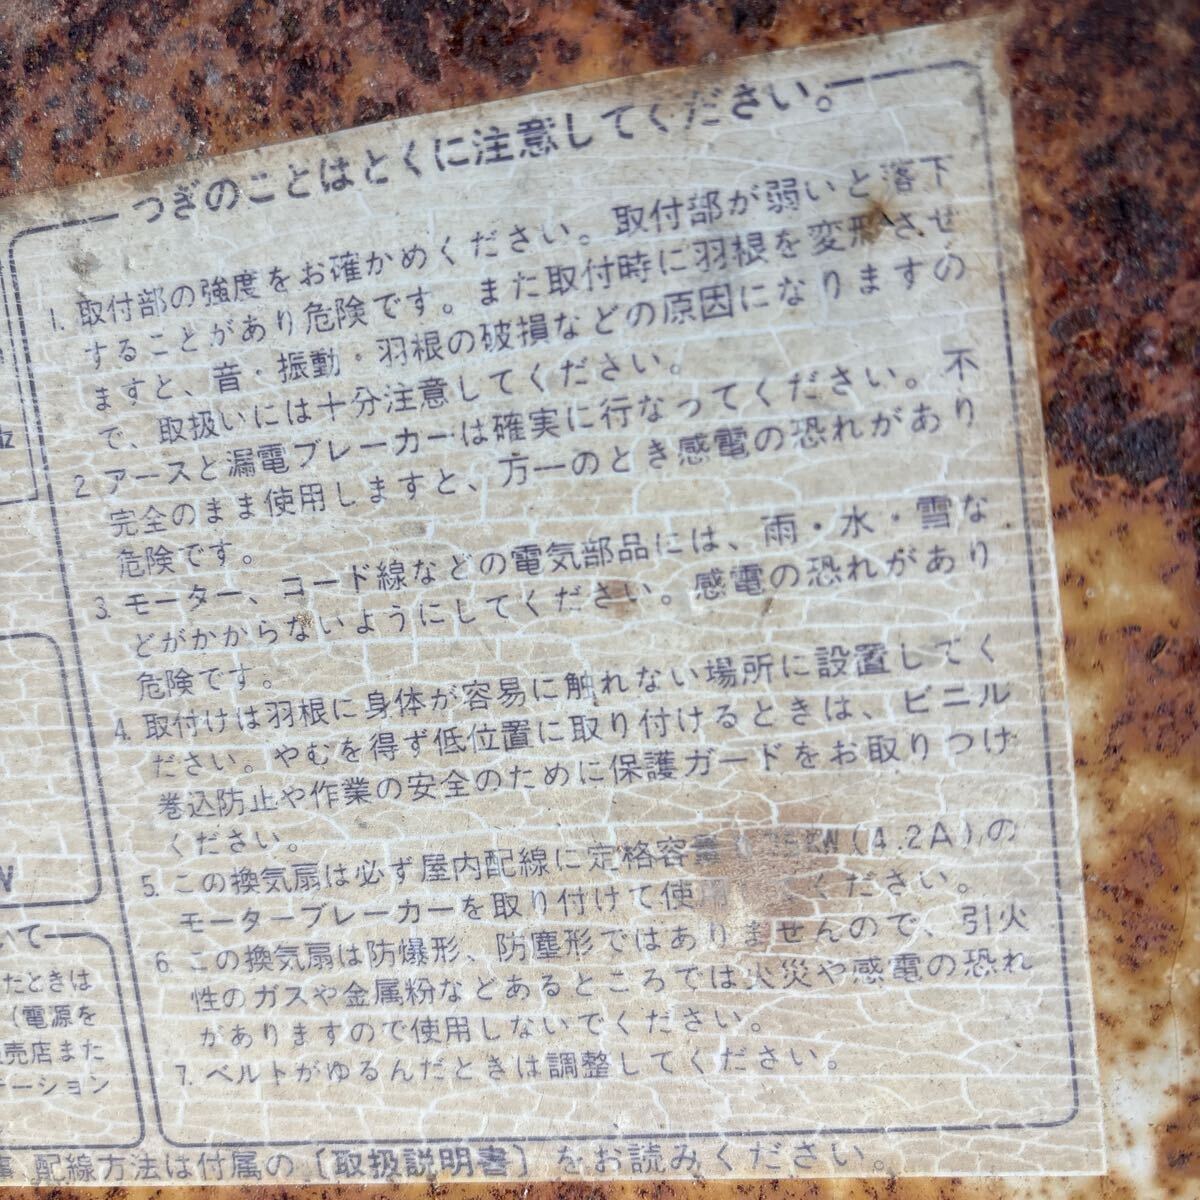 つぎのことはとくに注意してください。
1. 取付部の強度をお確かめください。取付部が弱いと落下
することがあり危険です。また取付時に羽根を変形させ
ますと、音・振動・羽根の破損などの原因になりますの
で、取扱いには十分注意してください。
2. アースと漏電ブレーカーは確実に行なってください。不
完全のまま使用しますと、万一のとき感電の恐れがあり
危険です。
3. モーター、コード線などの電気部品には、雨・水・雪な
どがかからないようにしてください。感電の恐れがあり
危険です。
4. 取付けは羽根に身体が容易に触れない場所に設置してく
ださい。やむを得ず低位置に取り付けるときは、ビニル
巻込防止や作業の安全のために保護ガードをお取りつけ
ください。
5. この換気扇は必ず屋内配線に定格容量 KW(4.2A)の
モーターブレーカーを取り付けて使用 てください。
6. この換気扇は防爆形、防塵形ではありませんので、引火
性のガスや金属粉などあるところでは火災や感電の恐れ
がありますので使用しないでください。
7. ベルトがゆるんだときは調整してください。
W
いて
たときは
(電源を
売店また
テーション
配線方法は付属の〔取扱説明書〕をお読みください。